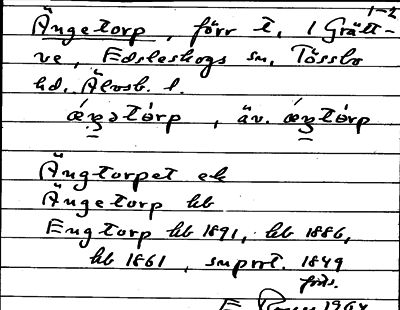 1-2
Ängetorp, förr t. 1 Grätt-
ve, Edsleskogs sn, Tössbo
hd, Älvsb. l.
æŋətórp, äv. æŋtórp
Ängtorpet ek
Ängetorp kb
Engtorp kb 1891, kb 1886,
kb 1861, suprt. 1849
E 1964